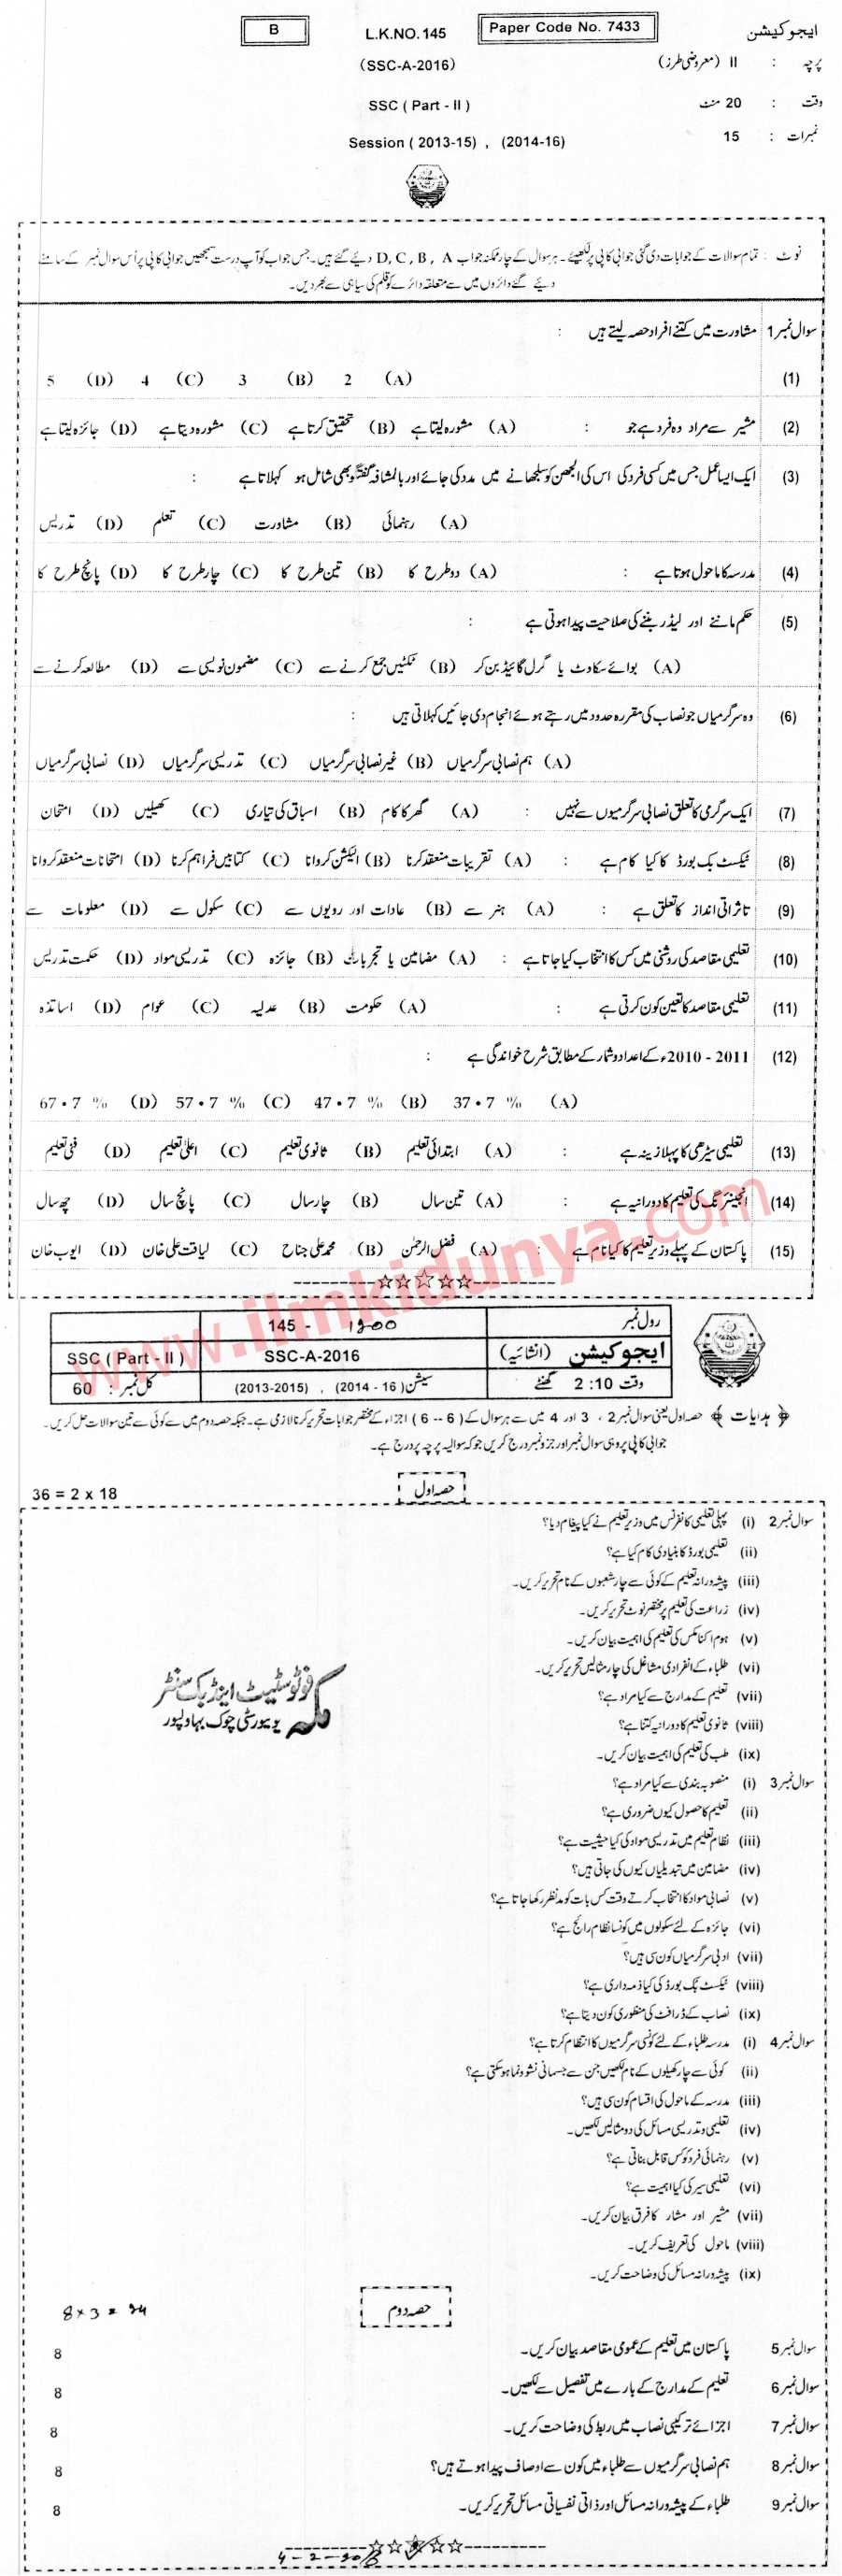 B L.K.NO. 145 Paper Code No. 7433 ایجوکیشن
(SSC-A-2016) پرچہ : II (معروضی طرز)
SSC ( Part - II ) وقت : 20 منٹ
Session ( 2013-15) , (2014-16) نمبرات : 15
نوٹ : تمام سوالات کے جوابات دی گئی جوابی کاپی پر لکھیئے ۔ ہر سوال کے چار ممکنہ جواب D, C, B, A دیئے گئے ہیں ۔ جس جواب کو آپ درست سمجھیں جوابی کاپی پر اُس سوال نمبر کے سامنے
دیئے گئے دائروں میں سے متعلقہ دائرے کو قلم کی سیاہی سے بھر دیں۔
سوال نمبر 1 مشاورت میں کتنے افراد حصہ لیتے ہیں :
(1) (A) 2 (B) 3 (C) 4 (D) 5
(2) مشیر سے مراد وہ فرد ہے جو : (A) مشورہ لیتا ہے (B) تحقیق کرتا ہے (C) مشورہ دیتا ہے (D) جائزہ لیتا ہے
(3) ایک ایسا عمل جس میں کسی فرد کی اس کی الجھن کو سلجھانے میں مدد کی جائے اور بالمشافہ گفتگو بھی شامل ہو کہلاتا ہے :
(A) رہنمائی (B) مشاورت (C) تعلم (D) تدریس
(4) مدرسہ کا ماحول ہوتا ہے : (A) دو طرح کا (B) تین طرح کا (C) چار طرح کا (D) پانچ طرح کا
(5) حکم ماننے اور لیڈر بننے کی صلاحیت پیدا ہوتی ہے :
(A) بوائے سکاوٹ یا گرل گائیڈ بن کر (B) ٹکٹیں جمع کرنے سے (C) مضمون نویسی سے (D) مطالعہ کرنے سے
(6) وہ سرگرمیاں جو نصاب کی مقررہ حدود میں رہتے ہوئے انجام دی جائیں کہلاتی ہیں :
(A) ہم نصابی سرگرمیاں (B) غیر نصابی سرگرمیاں (C) تدریسی سرگرمیاں (D) نصابی سرگرمیاں
(7) ایک سرگرمی کا تعلق نصابی سرگرمیوں سے نہیں : (A) گھر کا کام (B) اسباق کی تیاری (C) کھیلیں (D) امتحان
(8) ٹیکسٹ بک بورڈ کا کیا کام ہے : (A) تقریبات منعقد کرنا (B) الیکشن کروانا (C) کتابیں فراہم کرنا (D) امتحانات منعقد کروانا
(9) تاثراتی انداز کا تعلق ہے : (A) ہنر سے (B) عادات اور رویوں سے (C) سکول سے (D) معلومات سے
(10) تعلیمی مقاصد کی روشنی میں کس کا انتخاب کیا جاتا ہے : (A) مضامین یا تجربات (B) جائزہ (C) تدریسی مواد (D) حکمت تدریس
(11) تعلیمی مقاصد کا تعین کون کرتی ہے : (A) حکومت (B) عدلیہ (C) عوام (D) اساتذہ
(12) 2010 - 2011ء کے اعداد و شمار کے مطابق شرح خواندگی ہے :
(A) 37.7 % (B) 47.7 % (C) 57.7 % (D) 67.7 %
(13) تعلیمی سیڑھی کا پہلا زینہ ہے : (A) ابتدائی تعلیم (B) ثانوی تعلیم (C) اعلیٰ تعلیم (D) فنی تعلیم
(14) انجینئرنگ کی تعلیم کا دورانیہ ہے : (A) تین سال (B) چار سال (C) پانچ سال (D) چھ سال
(15) پاکستان کے پہلے وزیر تعلیم کا کیا نام ہے : (A) فضل الرحمٰن (B) محمد علی جناح (C) لیاقت علی خان (D) ایوب خان
www.ilmkidunya.com
رول نمبر 145 - 1200
ایجوکیشن (انشائیہ) SSC-A-2016 SSC ( Part - II )
وقت 2:10 گھنٹے سیشن (2014 - 16) , (2013-2015) کل نمبر : 60
﴿ ہدایات ﴾ حصہ اول یعنی سوال نمبر 2 ، 3 اور 4 میں سے ہر سوال کے ( 6 -- 6 ) اجزاء کے مختصر جوابات تحریر کرنا لازمی ہے ۔ جبکہ حصہ دوم میں سے کوئی سے تین سوالات حل کریں ۔
جوابی کاپی پر وہی سوال نمبر اور جز و نمبر درج کریں جو کہ سوالیہ پرچہ پر درج ہے۔
حصہ اول
36 = 2 x 18
سوال نمبر 2 (i) پہلی تعلیمی کانفرنس میں وزیر تعلیم نے کیا پیغام دیا؟
(ii) تعلیمی بورڈ کا بنیادی کام کیا ہے؟
(iii) پیشہ ورانہ تعلیم کے کوئی سے چار شعبوں کے نام تحریر کریں ۔
(iv) زراعت کی تعلیم پر مختصر نوٹ تحریر کریں ۔
(v) ہوم اکنامکس کی تعلیم کی اہمیت بیان کریں ۔
(vi) طلباء کے انفرادی مشاغل کی چار مثالیں تحریر کریں ۔
(vii) تعلیم کے مدارج سے کیا مراد ہے؟
(viii) ثانوی تعلیم کا دورانیہ کتنا ہے؟
(ix) طب کی تعلیم کی اہمیت بیان کریں ۔
مکہ فوٹو سٹیٹ اینڈ بک سنٹر
یونیورسٹی چوک بہاولپور
سوال نمبر 3 (i) منصوبہ بندی سے کیا مراد ہے؟
(ii) تعلیم کا حصول کیوں ضروری ہے؟
(iii) نظام تعلیم میں تدریسی مواد کی کیا حیثیت ہے؟
(iv) مضامین میں تبدیلیاں کیوں کی جاتی ہیں؟
(v) نصابی مواد کا انتخاب کرتے وقت کس بات کو مدنظر رکھا جاتا ہے؟
(vi) جائزہ کے لئے سکولوں میں کونسا نظام رائج ہے؟
(vii) ادبی سرگرمیاں کون سی ہیں؟
(viii) ٹیکسٹ بُک بورڈ کی کیا ذمہ داری ہے؟
(ix) نصاب کے ڈرافٹ کی منظوری کون دیتا ہے؟
سوال نمبر 4 (i) مدرسہ طلباء کے لئے کونسی سرگرمیوں کا انتظام کرتا ہے؟
(ii) کوئی سے چار کھیلوں کے نام لکھیں جن سے جسمانی نشوونما ہو سکتی ہے؟
(iii) مدرسہ کے ماحول کی اقسام کون سی ہیں؟
(iv) تعلیمی و تدریسی مسائل کی دو مثالیں لکھیں ۔
(v) رہنمائی فرد کو کس قابل بناتی ہے؟
(vi) تعلیمی سیر کی کیا اہمیت ہے؟
(vii) مشیر اور مشار کا فرق بیان کریں ۔
(viii) ماحول کی تعریف کریں ۔
(ix) پیشہ ورانہ مسائل کی وضاحت کریں ۔
حصہ دوم
8 x 3 = 24
سوال نمبر 5 پاکستان میں تعلیم کے عمومی مقاصد بیان کریں ۔ 8
سوال نمبر 6 تعلیم کے مدارج کے بارے میں تفصیل سے لکھیں ۔ 8
سوال نمبر 7 اجزائے ترکیبی نصاب میں ربط کی وضاحت کریں ۔ 8
سوال نمبر 8 ہم نصابی سرگرمیوں سے طلباء میں کون سے اوصاف پیدا ہوتے ہیں؟ 8
سوال نمبر 9 طلباء کے پیشہ ورانہ مسائل اور ذاتی نفسیاتی مسائل تحریر کریں ۔ 8